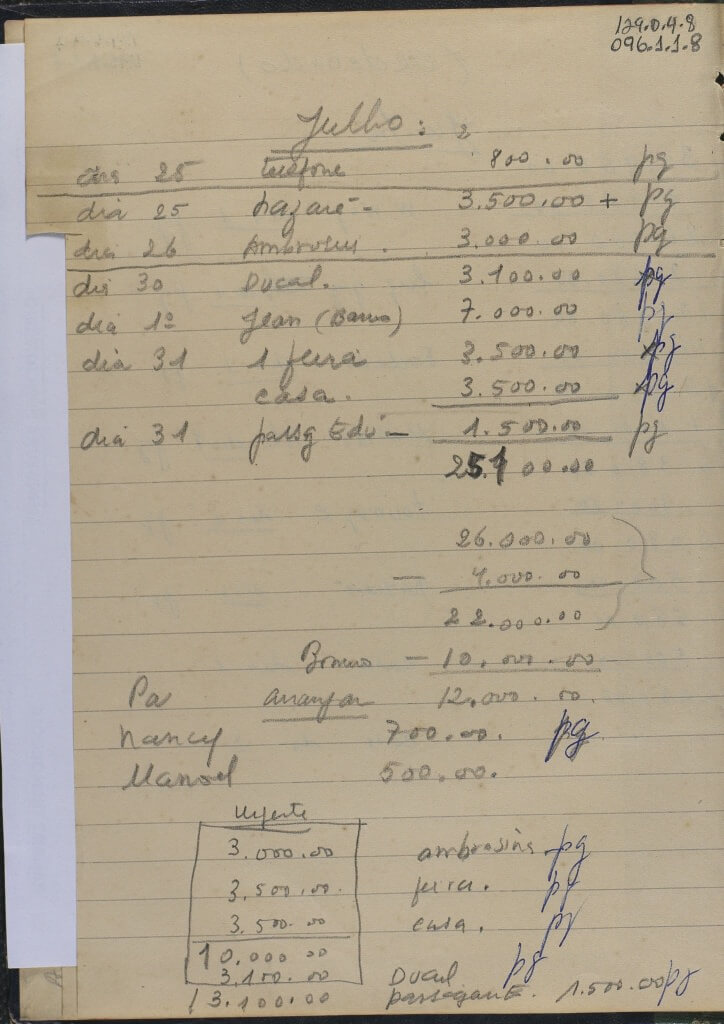 129.0.4.8
096.1.1.8
Julho: 2
dia 25 telefone 800.00 pg
dia 25 Nazaré - 3.500.00 + pg
dia 26 Ambrosina. 3.000.00 pg
dia 30 Ducal. 3.100.00 pg
dia 1º Jean (Banco) 7.000.00 pg
dia 31 1 feira 3.500.00 pg
casa. 3.500.00 pg
dia 31 passg Edú - 1.500.00 pg
25.100.00
26.000.00
- 4.000.00
22.000.00
- 10.000.00
Pa arranjar 12.000.00.
Nancy 700.00. pg
Manoel 500.00.
Urgente
3.000.00 ambrosina pg
3.500.00. feira. pg
3.500.00 casa. pg
10.000.00
3.100.00 Ducal pg
13.100.00 1.500.00 pg